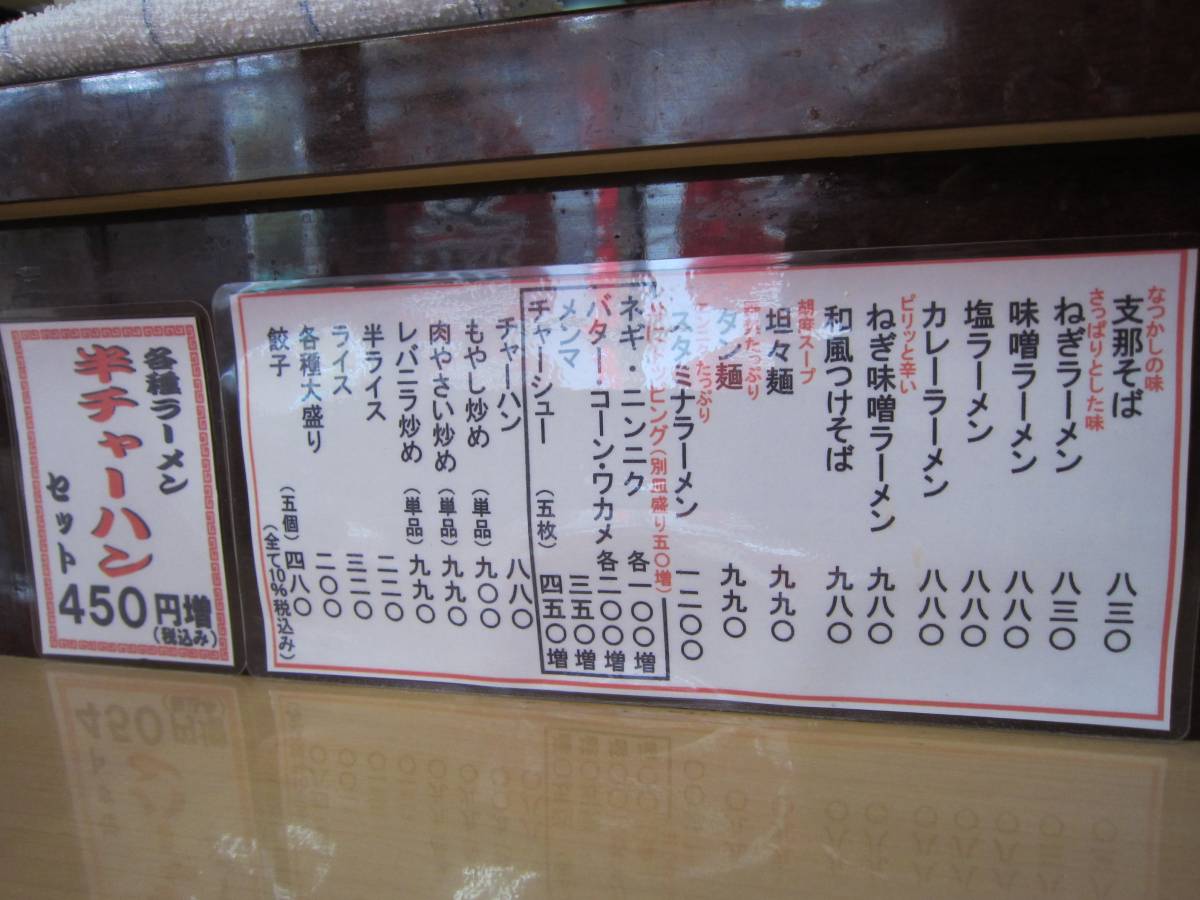 なつかしの味
支那そば 八三〇
さっぱりとした味
ねぎラーメン 八三〇
味噌ラーメン 八八〇
塩ラーメン 八八〇
カレーラーメン 八八〇
ピリッと辛い
ねぎ味噌ラーメン 九八〇
和風つけそば 九八〇
胡麻スープ
坦々麺 九九〇
たっぷり
タン麺 九九〇
たっぷり
スタミナラーメン 一二〇〇
トッピング(別皿盛り五〇増)
ネギ・ニンニク 各一〇〇増
バター・コーン・ワカメ 各二〇〇増
メンマ 三五〇増
チャーシュー (五枚) 四五〇増
チャーハン 八八〇
もやし炒め (単品) 九〇〇
肉やさい炒め (単品) 九九〇
レバニラ炒め (単品) 九九〇
半ライス 二二〇
ライス 三二〇
各種大盛り 二〇〇
餃子 (五個) 四八〇
(全て10%税込み)
各種ラーメン
半チャーハン
セット
450円増
(税込み)